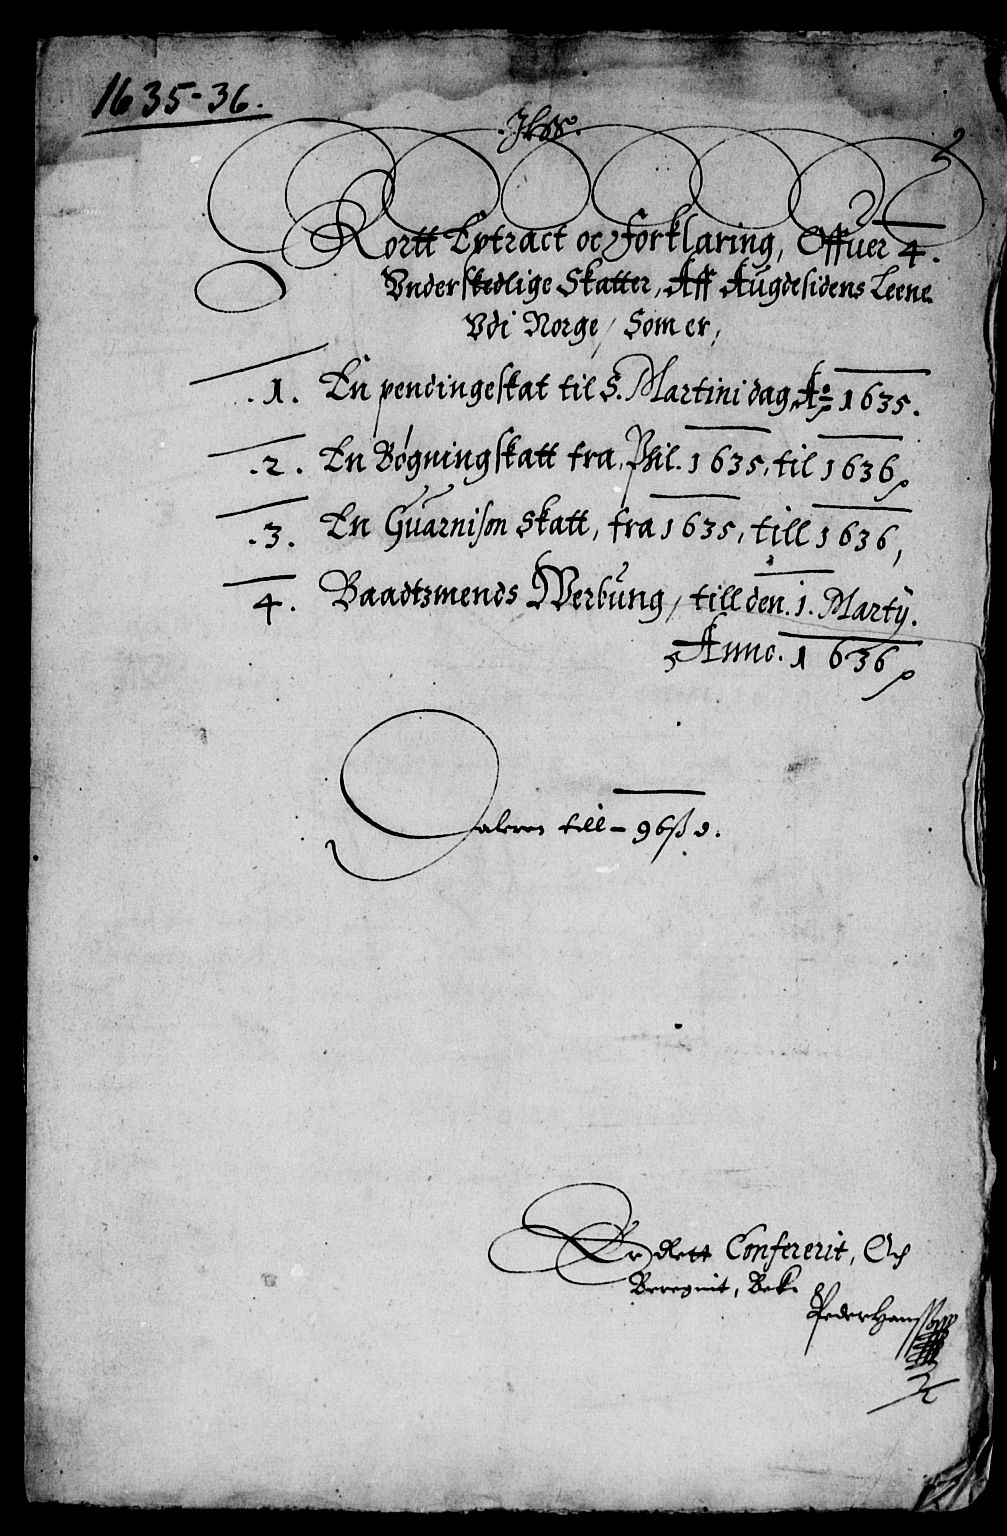 1635-36.
Kortt Extract oc forklaring, Offuer 4.
Vnderskedlige Skatter, Aff Augdesidens Leene
Vdi Norge, Som er,
.1. En pendingeskat til S. Martini dag Ao 1635.
.2. En Bøgningskatt fra Phil. 1635, til 1636
.3. En Guarnison Skatt, fra 1635, till 1636,
4. Baadtzmends Werbung, till den .1. Martij.
Anno. 1636
Daleren till - 96 ß d.
Er Rett Confererit, Och
Beregnit, Bek.
Peder Hanssøn